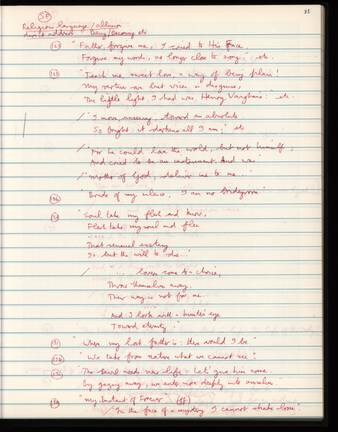 Religious language / allusion
direct address Being/Becoming etc
(127) "Father, forgive me, I cried to His Face,
Forgive my words, no longer close to song." etc.
"Teach me, sweet love, a way of being plain!
My virtues are but vices in disguise,
The little light I had was Henry Vaughan's." etc.
/ "I move, unseeing, toward an absolute
So bright it darkens all I am." etc
/ "For he could love the world, but not himself,
And cried to be an instrument. And was"
/ "Mother of God, deliver me to me..."
"Bride of my silence, I am no bridegroom"
"Soul take my flesh and
Flesh take my soul and flee
That sensual ecstasy
Is but the will to die..."
/ "... lovers come to choice,
Throw themselves away.
Their way is not for me.
And I look with a hunter's eye
Toward eternity"
(131) "When my lost father is: there would I be"
"We take from nature what we cannot see."
"The devil needs new life - let's give him some
By gazing away, we enter more deeply into ourselves.
"My Instant of Forever" (ff)
"In the face of a mystery I cannot shake loose".